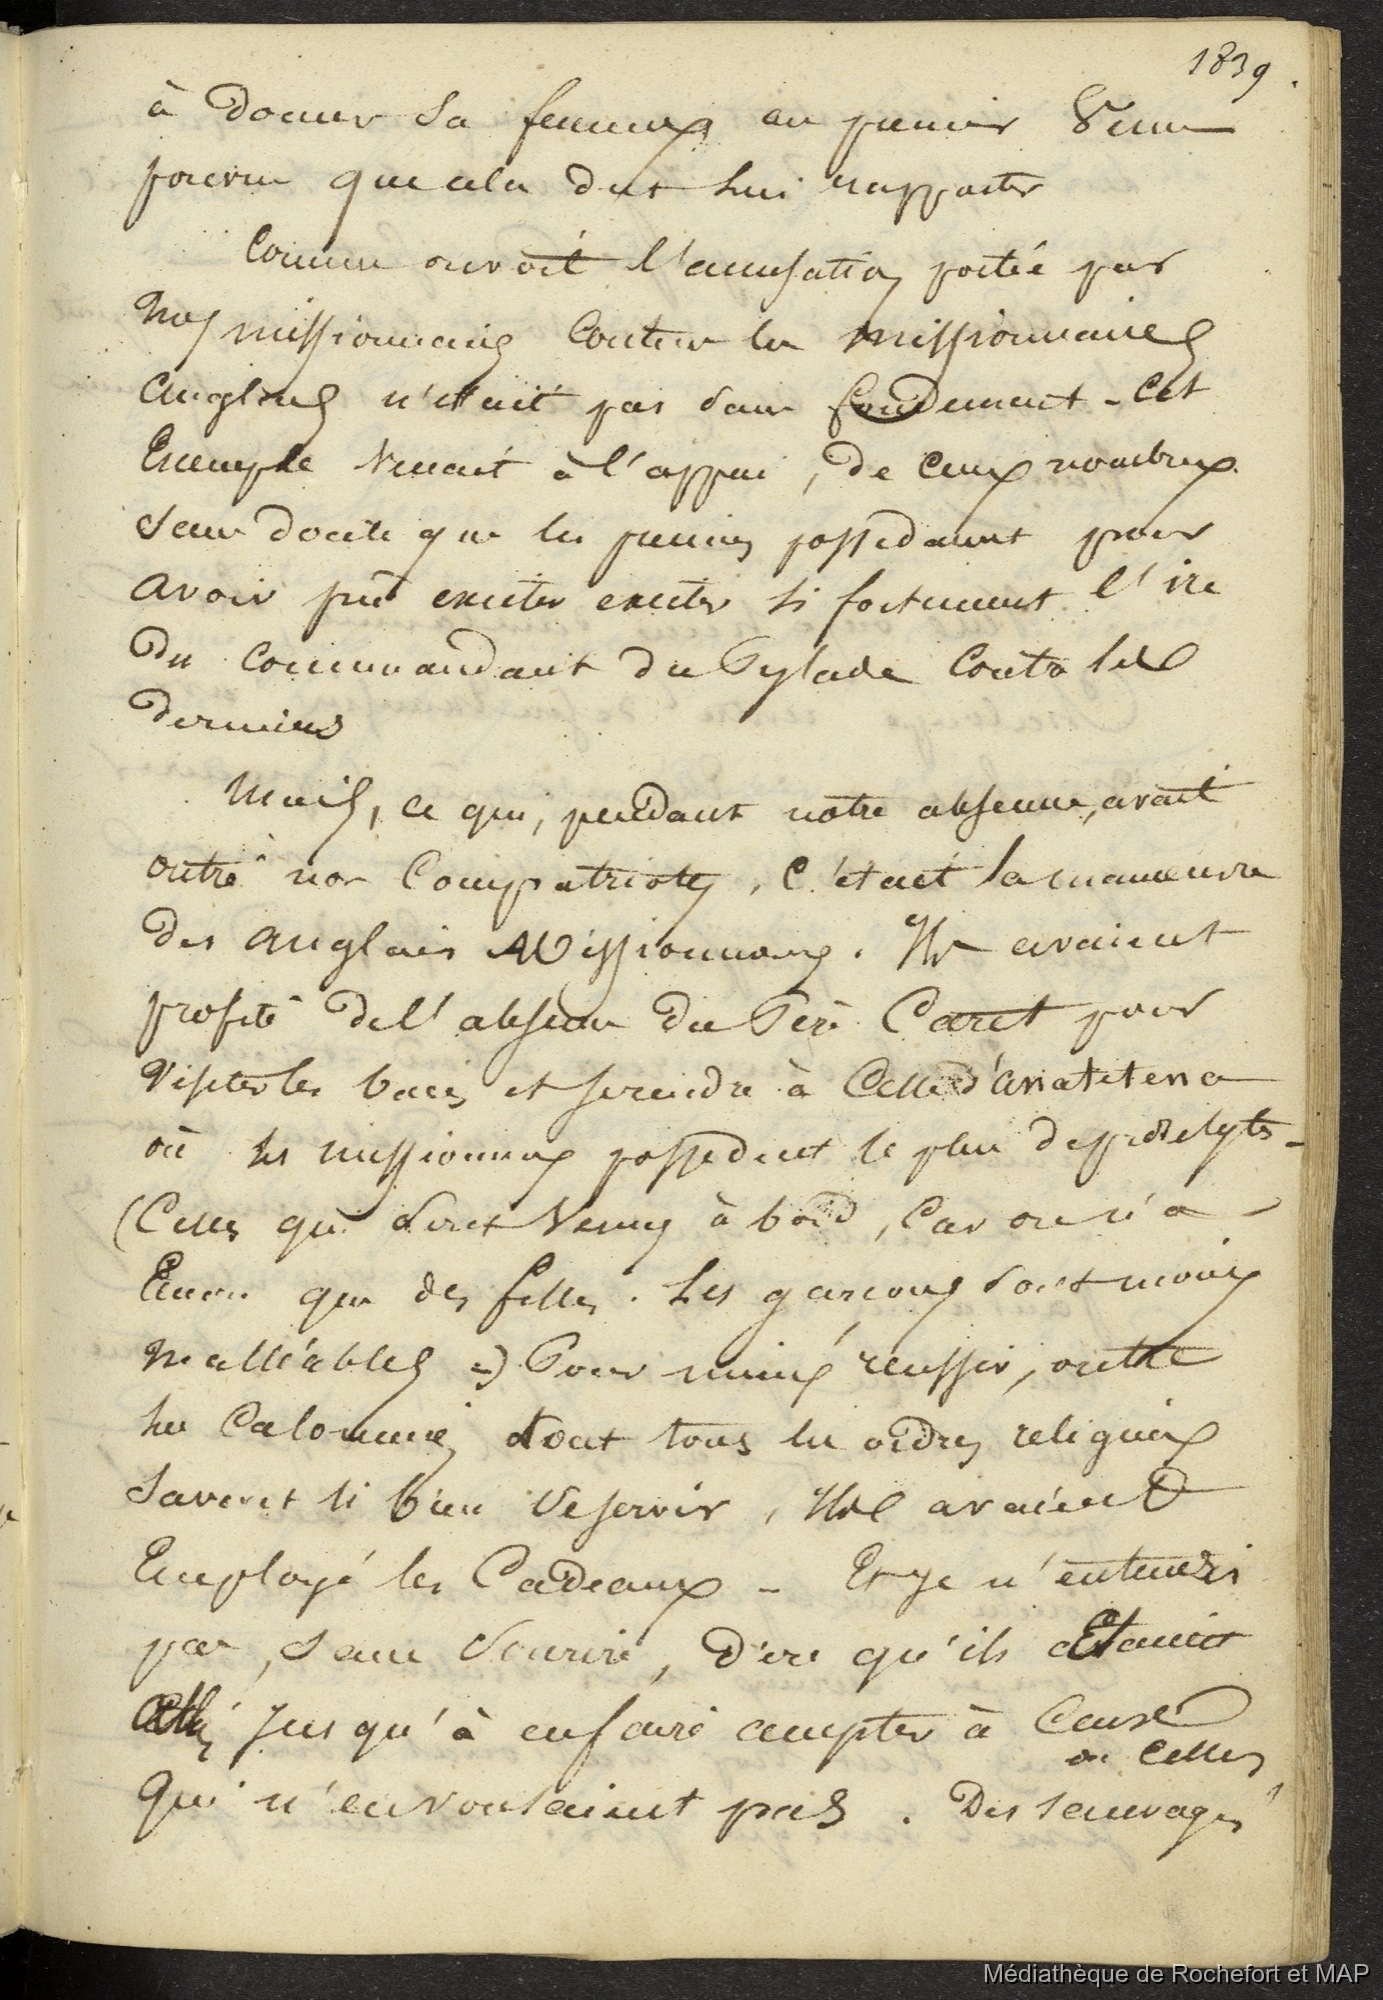 1839.
à donner sa femme au premier venu
pourvu que cela dut lui rapporter
Comme on voit l'accusation portée par
nos missionnaires Contre les missionnaires
anglais n'était pas sans fondement - Cet
Exemple venait à l'appui, de ceux nombreux
sans doute que les premiers possedaient pour
avoir pu exciter exciter si fortement l'ire
du Commandant du Pylade Contre les
derniers
Mais, ce qui, pendant notre absence, avait
outré nos Compatriotes, C'était la manœuvre
des anglais Missionnaires. Ils avaient
profité de l'absence du Père Caret pour
visiter les baies et se rendre à Celle d'anatetena
où les missionnaires possedent le plus de prosélytes -
(Celles qui sont venues à bord, Car on n'a
Encore que des filles. Les garçons sont moins
malléables -) Pour mieux reussir, outre
les Calomnies dont tous les ordres religieux
savent si bien se servir, Ils avaient
Employé les Cadeaux - Et je n'entendis
pas, sans sourire, dire qu'ils Etaient
allés jusqu'à en faire accepter à Ceux
ou Celles
qui n'en voulaient pas. Des sauvages
Médiathèque de Rochefort et MAP